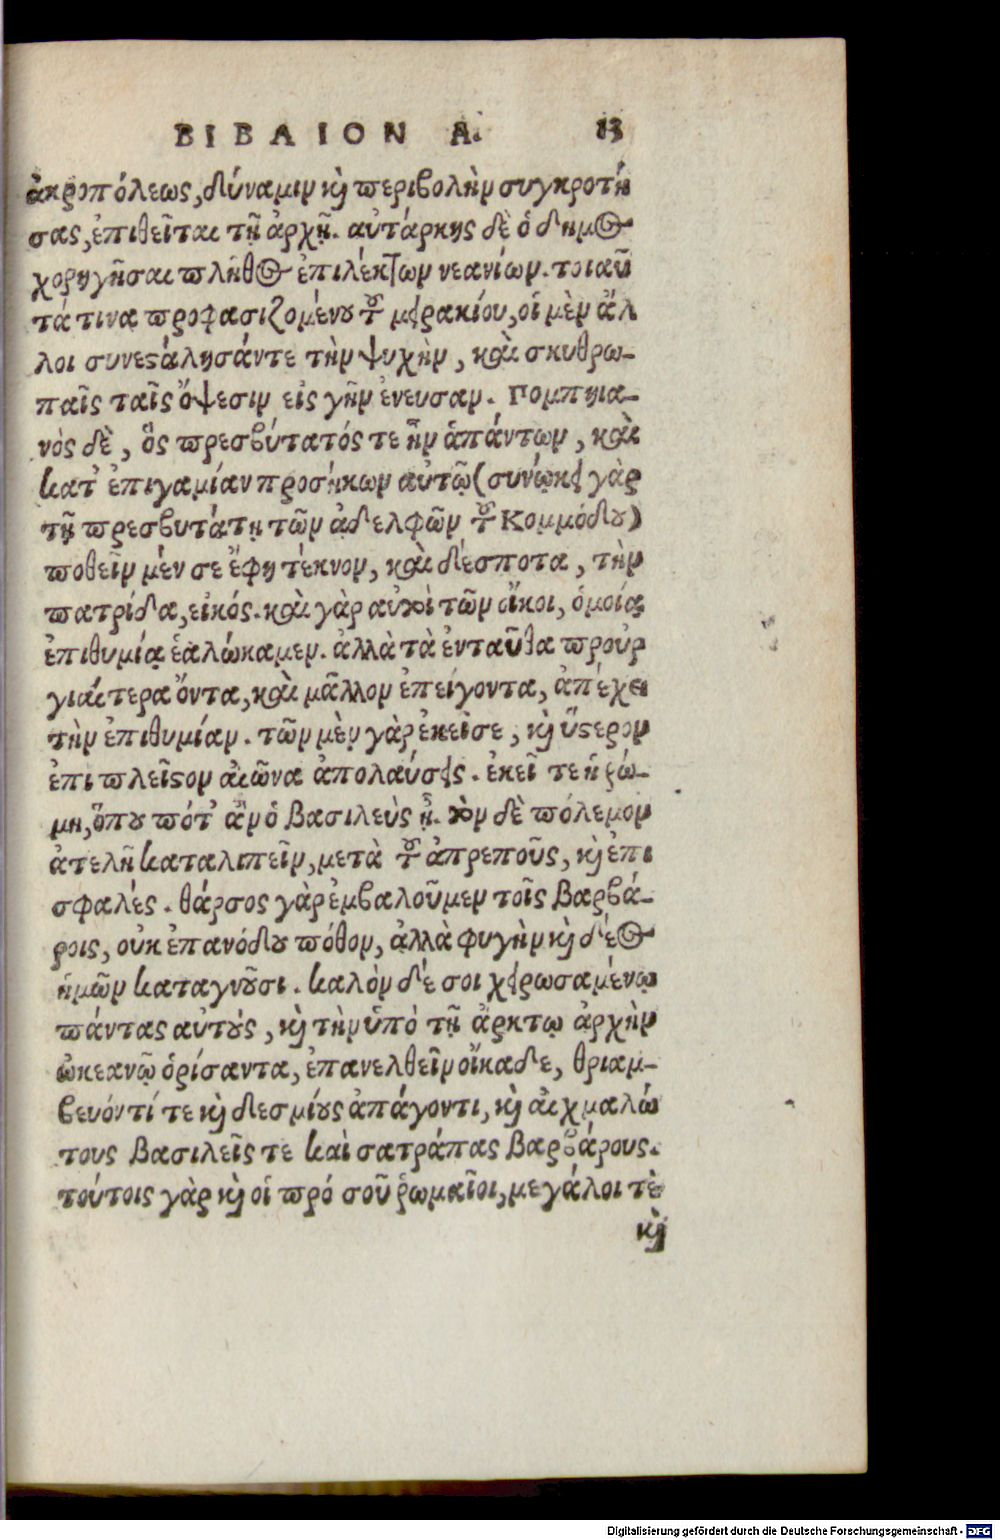 ΒΙΒΛΙΟΝ Α. 13
ἀκροπόλεως, δύναμιν καὶ περιβολὴν συγκροτή
σας, ἐπιθεῖται τῇ ἀρχῇ. αὐτάρκης δὲ ὁ δῆμος
χορηγῆσαι πλῆθος ἐπιλέκτων νεανίων. τοιαῦ
τά τινα προφασιζομένου τοῦ μειρακίου, οἱ μὲν ἄλ
λοι συνεστάλησάν τε τὴν ψυχὴν, καὶ σκυθρω-
παῖς ταῖς ὄψεσιν εἰς γῆν ἔνευσαν. Πομπηια-
νὸς δὲ, ὃς πρεσβύτατός τε ἦν ἁπάντων, καὶ
κατ' ἐπιγαμίαν προσήκων αὐτῷ (συνῴκει γὰρ
τῇ πρεσβυτάτῃ τῶν ἀδελφῶν τοῦ Κομμόδου)
ποθεῖν μέν σε ἔφη τέκνον, καὶ δέσποτα, τὴν
πατρίδα, εἰκός. καὶ γὰρ αὐτοὶ τῶν οἴκοι, ὁμοίᾳ
ἐπιθυμίᾳ ἑαλώκαμεν. ἀλλὰ τὰ ἐνταῦθα προὐρ
γιαίτερα ὄντα, καὶ μᾶλλον ἐπείγοντα, ἀπέχει
τὴν ἐπιθυμίαν. τῶν μὲν γὰρ ἐκεῖσε, καὶ ὕστερον
ἐπι πλεῖστον αἰῶνα ἀπολαύσεις. ἐκεῖ τε ἡ ῥώ-
μη, ὅπου πότ' ἂν ὁ βασιλεὺς ᾖ. τὸν δὲ πόλεμον
ἀτελῆ καταλιπεῖν, μετὰ τοῦ ἀπρεποῦς, καὶ ἐπι
σφαλές. θάρσος γὰρ ἐμβαλοῦμεν τοῖς βαρβά-
ροις, οὐκ ἐπανόδου πόθον, ἀλλὰ φυγὴν καὶ δέος
ἡμῶν καταγνοῦσι. καλὸν δέ σοι χειρωσαμένῳ
πάντας αὐτοὺς, καὶ τὴν ὑπὸ τῇ ἄρκτῳ ἀρχὴν
ὠκεανῷ ὁρίσαντα, ἐπανελθεῖν οἴκαδε, θριαμ-
βεύοντί τε καὶ δεσμίους ἀπάγοντι, καὶ αἰχμαλώ
τους βασιλεῖς τε καὶ σατράπας βαρβάρους.
τούτοις γὰρ καὶ οἱ πρό σοῦ ῥωμαῖοι, μεγάλοι τὲ
καὶ
Digitalisierung gefördert durch die Deutsche Forschungsgemeinschaft - DFG